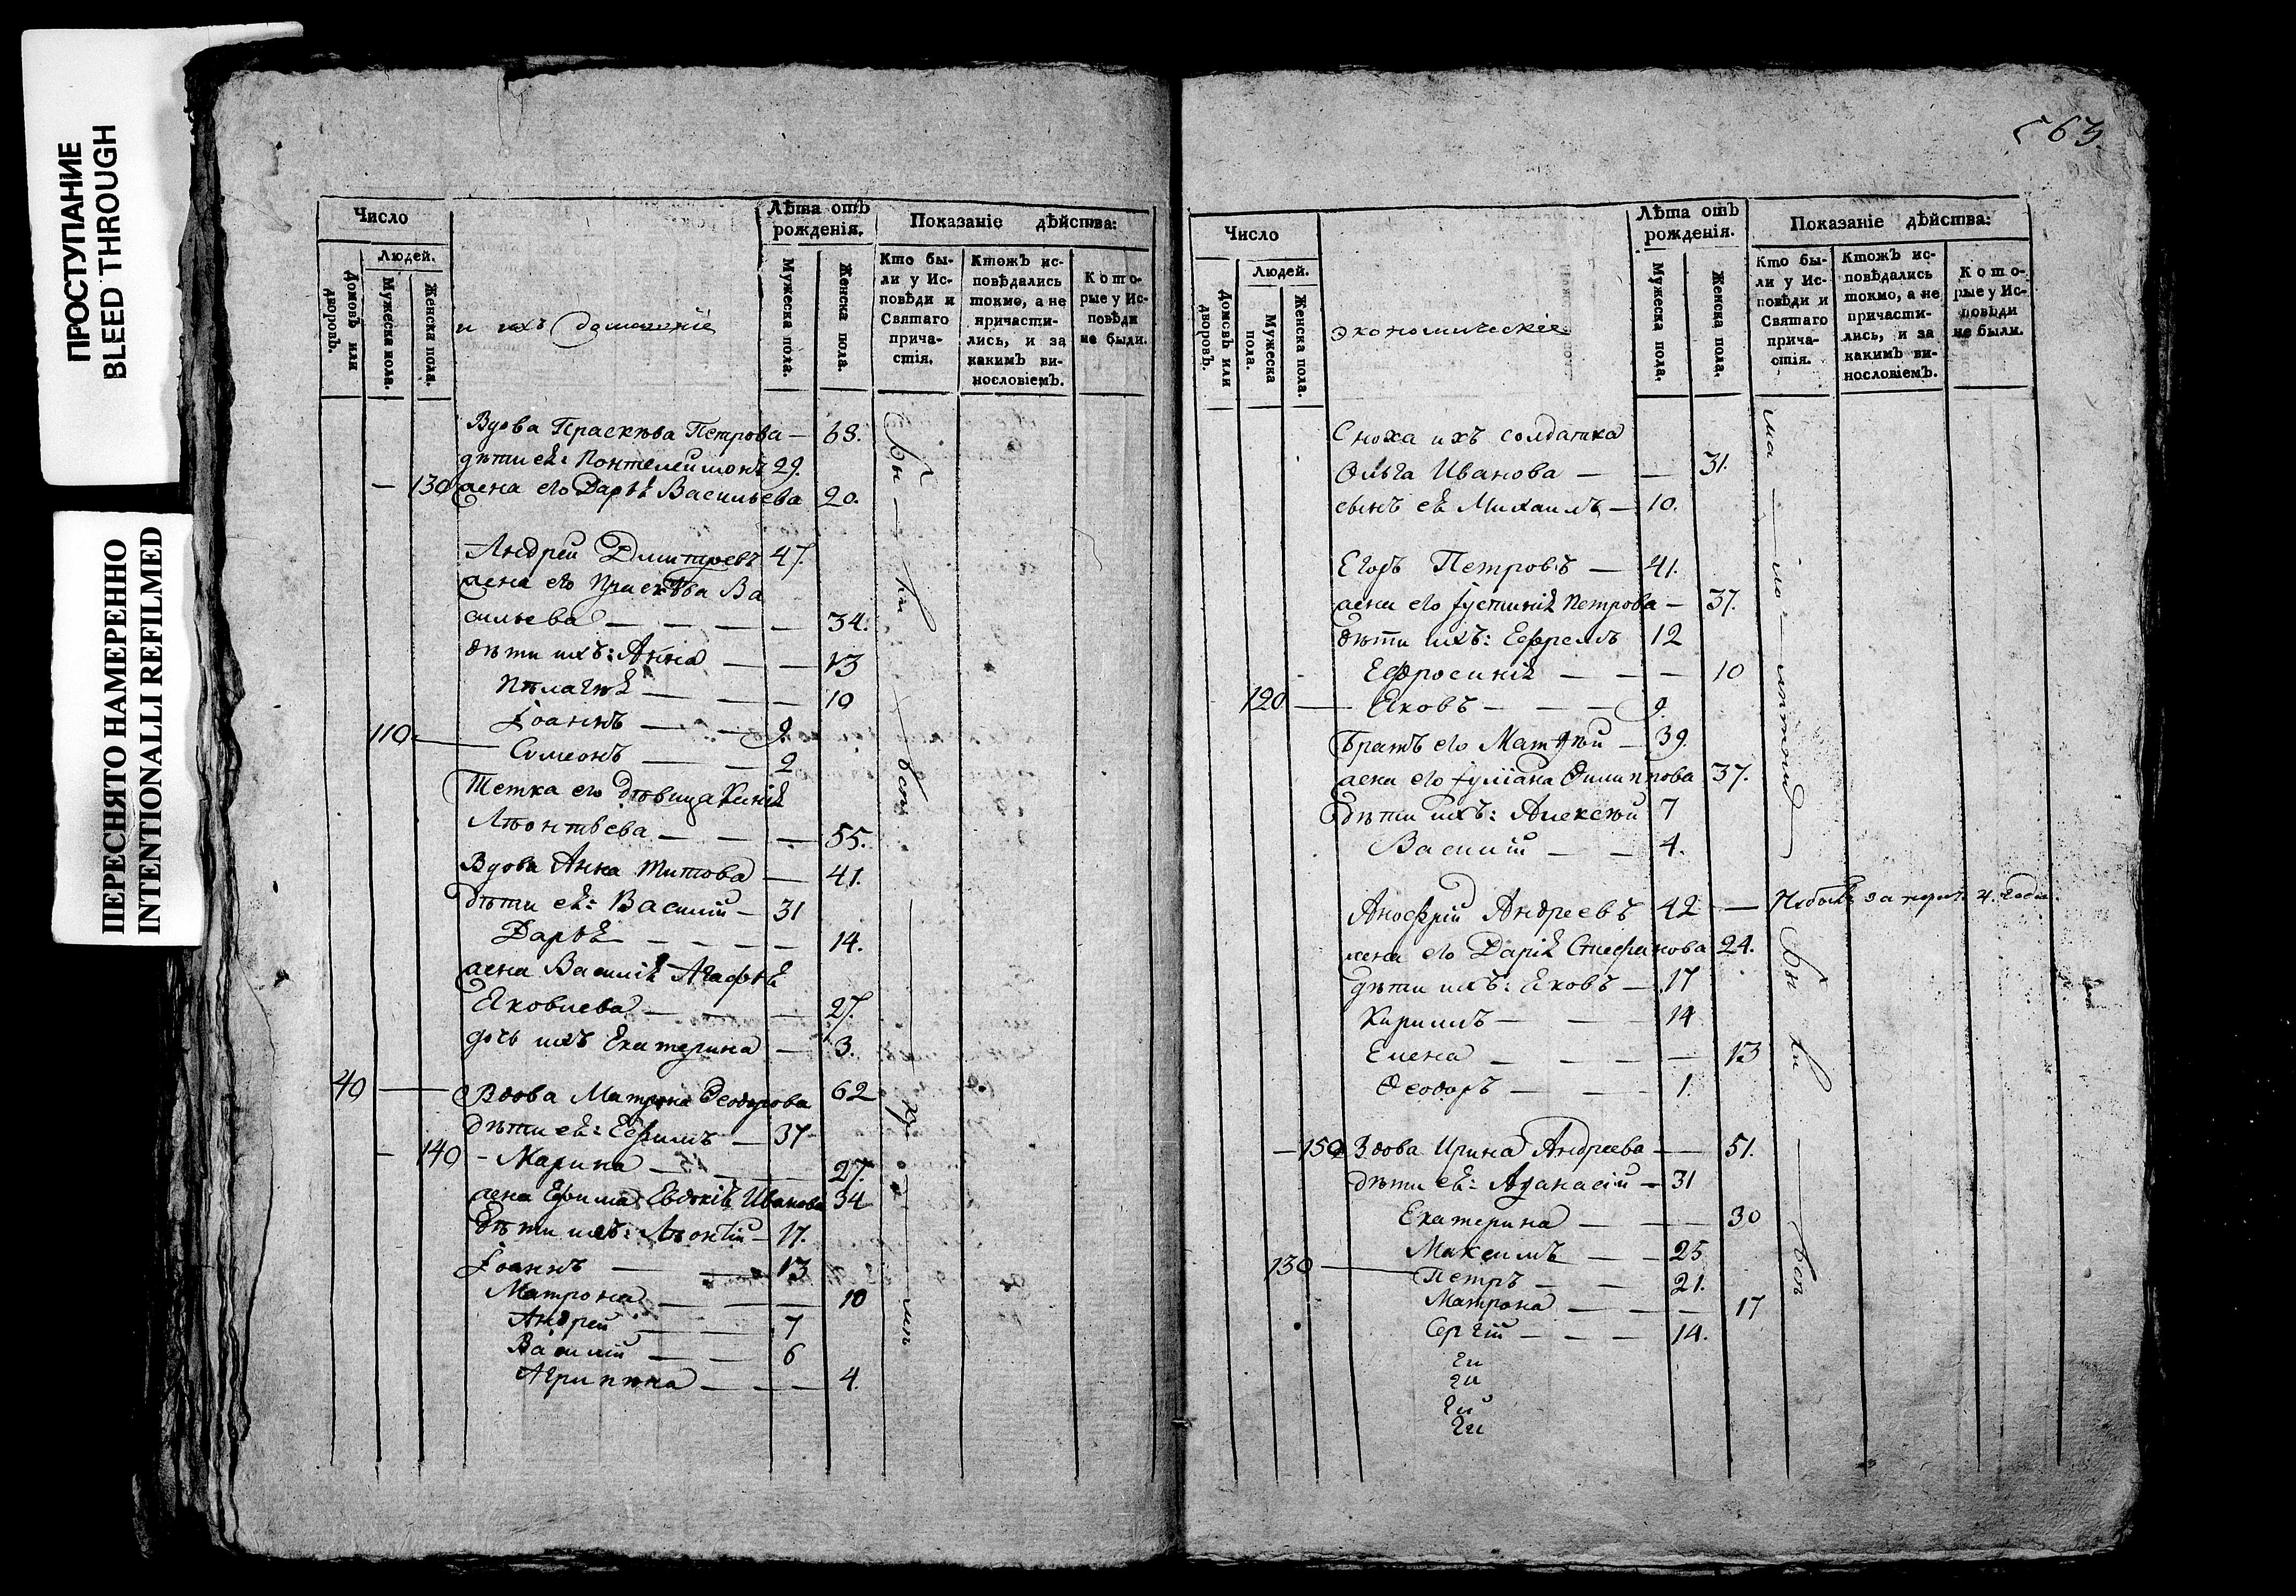 ПРОСТУПАНИЕ
BLEED THROUGH
ПЕРЕСНЯТО НАМЕРЕННО
INTENTIONALLI REFILMED
Число
Лѣта отъ рожденія.
Показаніе дѣйства:
Людей.
Домовъ или дворовъ.
Мужеска пола.
Женска пола.
и ихъ домашніе
Мужеска пола.
Женска пола.
Кто были у Исповѣди и Святаго причастія.
Ктожъ исповѣдались токмо, а не причастились, и за какимъ винословіемъ.
Которые у Исповѣди не были.
Вдова Праскева Петрова — 68.
дѣти еѣ: Понтелеимонъ 29.
— 130 жена его Дарьѣ Васильева 20.
Андрей Дмитреевъ 47.
жена его Праскѣва Ва
сильева — — — — 34.
дѣти ихъ: Анна — — 13
Пѣлагѣѣ — — — 10
Іоаннъ — — 9.
110 — Симеонъ — — 2
Тетка его дѣвица Ксеніѣ
Лѣонтьева — — — 55.
Вдова Анна Титова — 41.
дѣти еѣ: Василій — 31
Дарьѣ — — — — 14.
жена Василіѣ Агафьѣ
Яковлева — — — 27.
дочь ихъ Екатерина — 3.
40 — Вдова Матрона Феодорова 62
дѣти еѣ: Ефимъ — 37
— 140 - Марина — — — 27.
жена Ефима Евдокіѣ Иванова 34
дѣти ихъ: Лѣонтій — 17.
Іоаннъ — — 13
Матрона — — — 10
Андрей — — 7
Василій — — 6
Агрипѣна — — — 4.
бы — ли — у — бсп
563
Число
Лѣта отъ рожденія.
Показаніе дѣйства:
Людей.
Домовъ или дворовъ.
Мужеска пола.
Женска пола.
экономическіе
Мужеска пола.
Женска пола.
Кто были у Исповѣди и Святаго причастія.
Ктожъ исповѣдались токмо, а не причастились, и за какимъ винословіемъ.
Которые у Исповѣди не были.
Сноха ихъ солдатка
Ольга Иванова — — 31.
сынъ еѣ Михаилъ — 10.
Егоръ Петровъ — 41.
жена его Іустиніѣ Петрова — 37.
дѣти ихъ: Ефремъ 12
Ефросиніѣ — — — 10
120 — Яковъ — — — 9.
Братъ его Матѳѣй — 39.
жена его Іуліана Филиппова 37.
дѣти ихъ: Алексѣй 7
Василій — — 4.
Аносфрій Андреевъ 42 —
жена его Даріѣ Стефанова 24.
дѣти ихъ: Яковъ — 17
Кирилъ — — — 14
Елена — — — — 13
Феодоръ — — — 1.
— 150 Вдова Ирина Андреева — 51.
дѣти еѣ: Афанасій — 31
Екатерина — — — 30
Максимъ — — 25
130 — Петръ — — 21.
Матрона — — — 17
Сергій — — — 14.